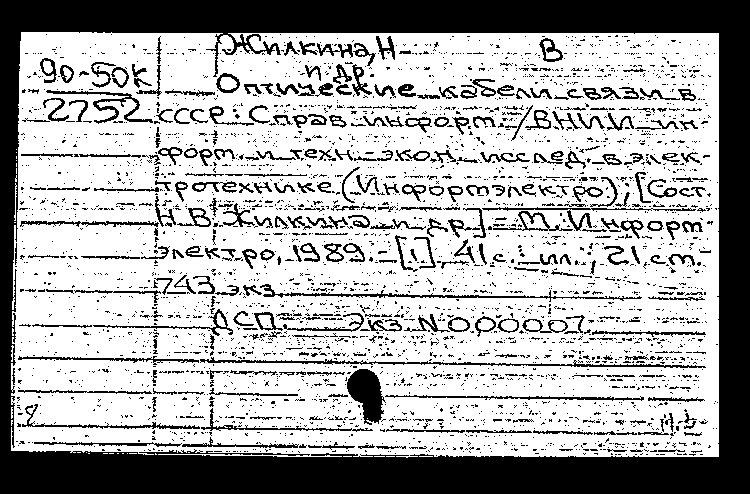 Жилкина, Н- В
и др.
90-50К
2752
Оптические кабели связи в
СССР: Справ. информ. / ВНИИ ин-
форм. и техн.-экон. исслед. в элек-
тротехнике (Информэлектро); [Сост.
Н.В. Жилкина и др.] - М.: Информ-
электро, 1989. - [1], 41 с.: ил.; 21 см. -
743 экз.
ДСП. Экз. N 000007